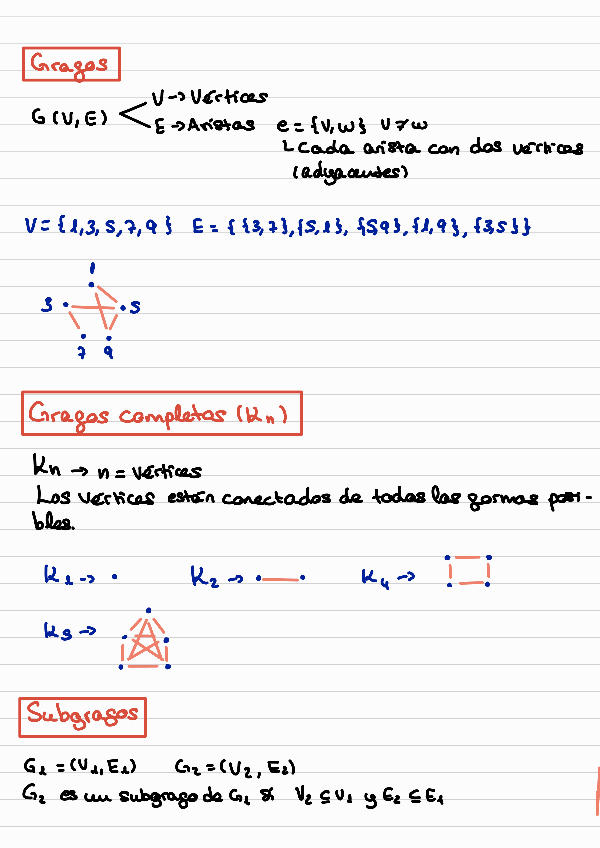 Grafos
G(V,E)
V → Vértices
E → Aristas e = {v,w} v ≠ w
↳ Cada arista con dos vértices
(adyacentes)
V = {1,3,5,7,9} E = {{3,7},{5,1},{5,9},{1,9},{3,5}}
1
3 5
7 9
Grafos completos (Kn)
Kn → n = vértices
Los vértices están conectados de todas las formas posi-
bles.
K1 → K2 → K4 →
K5 →
Subgrafos
G1 = (V1,E1) G2 = (V2,E2)
G2 es un subgrafo de G1 si V2 ⊆ V1 y E2 ⊆ E1